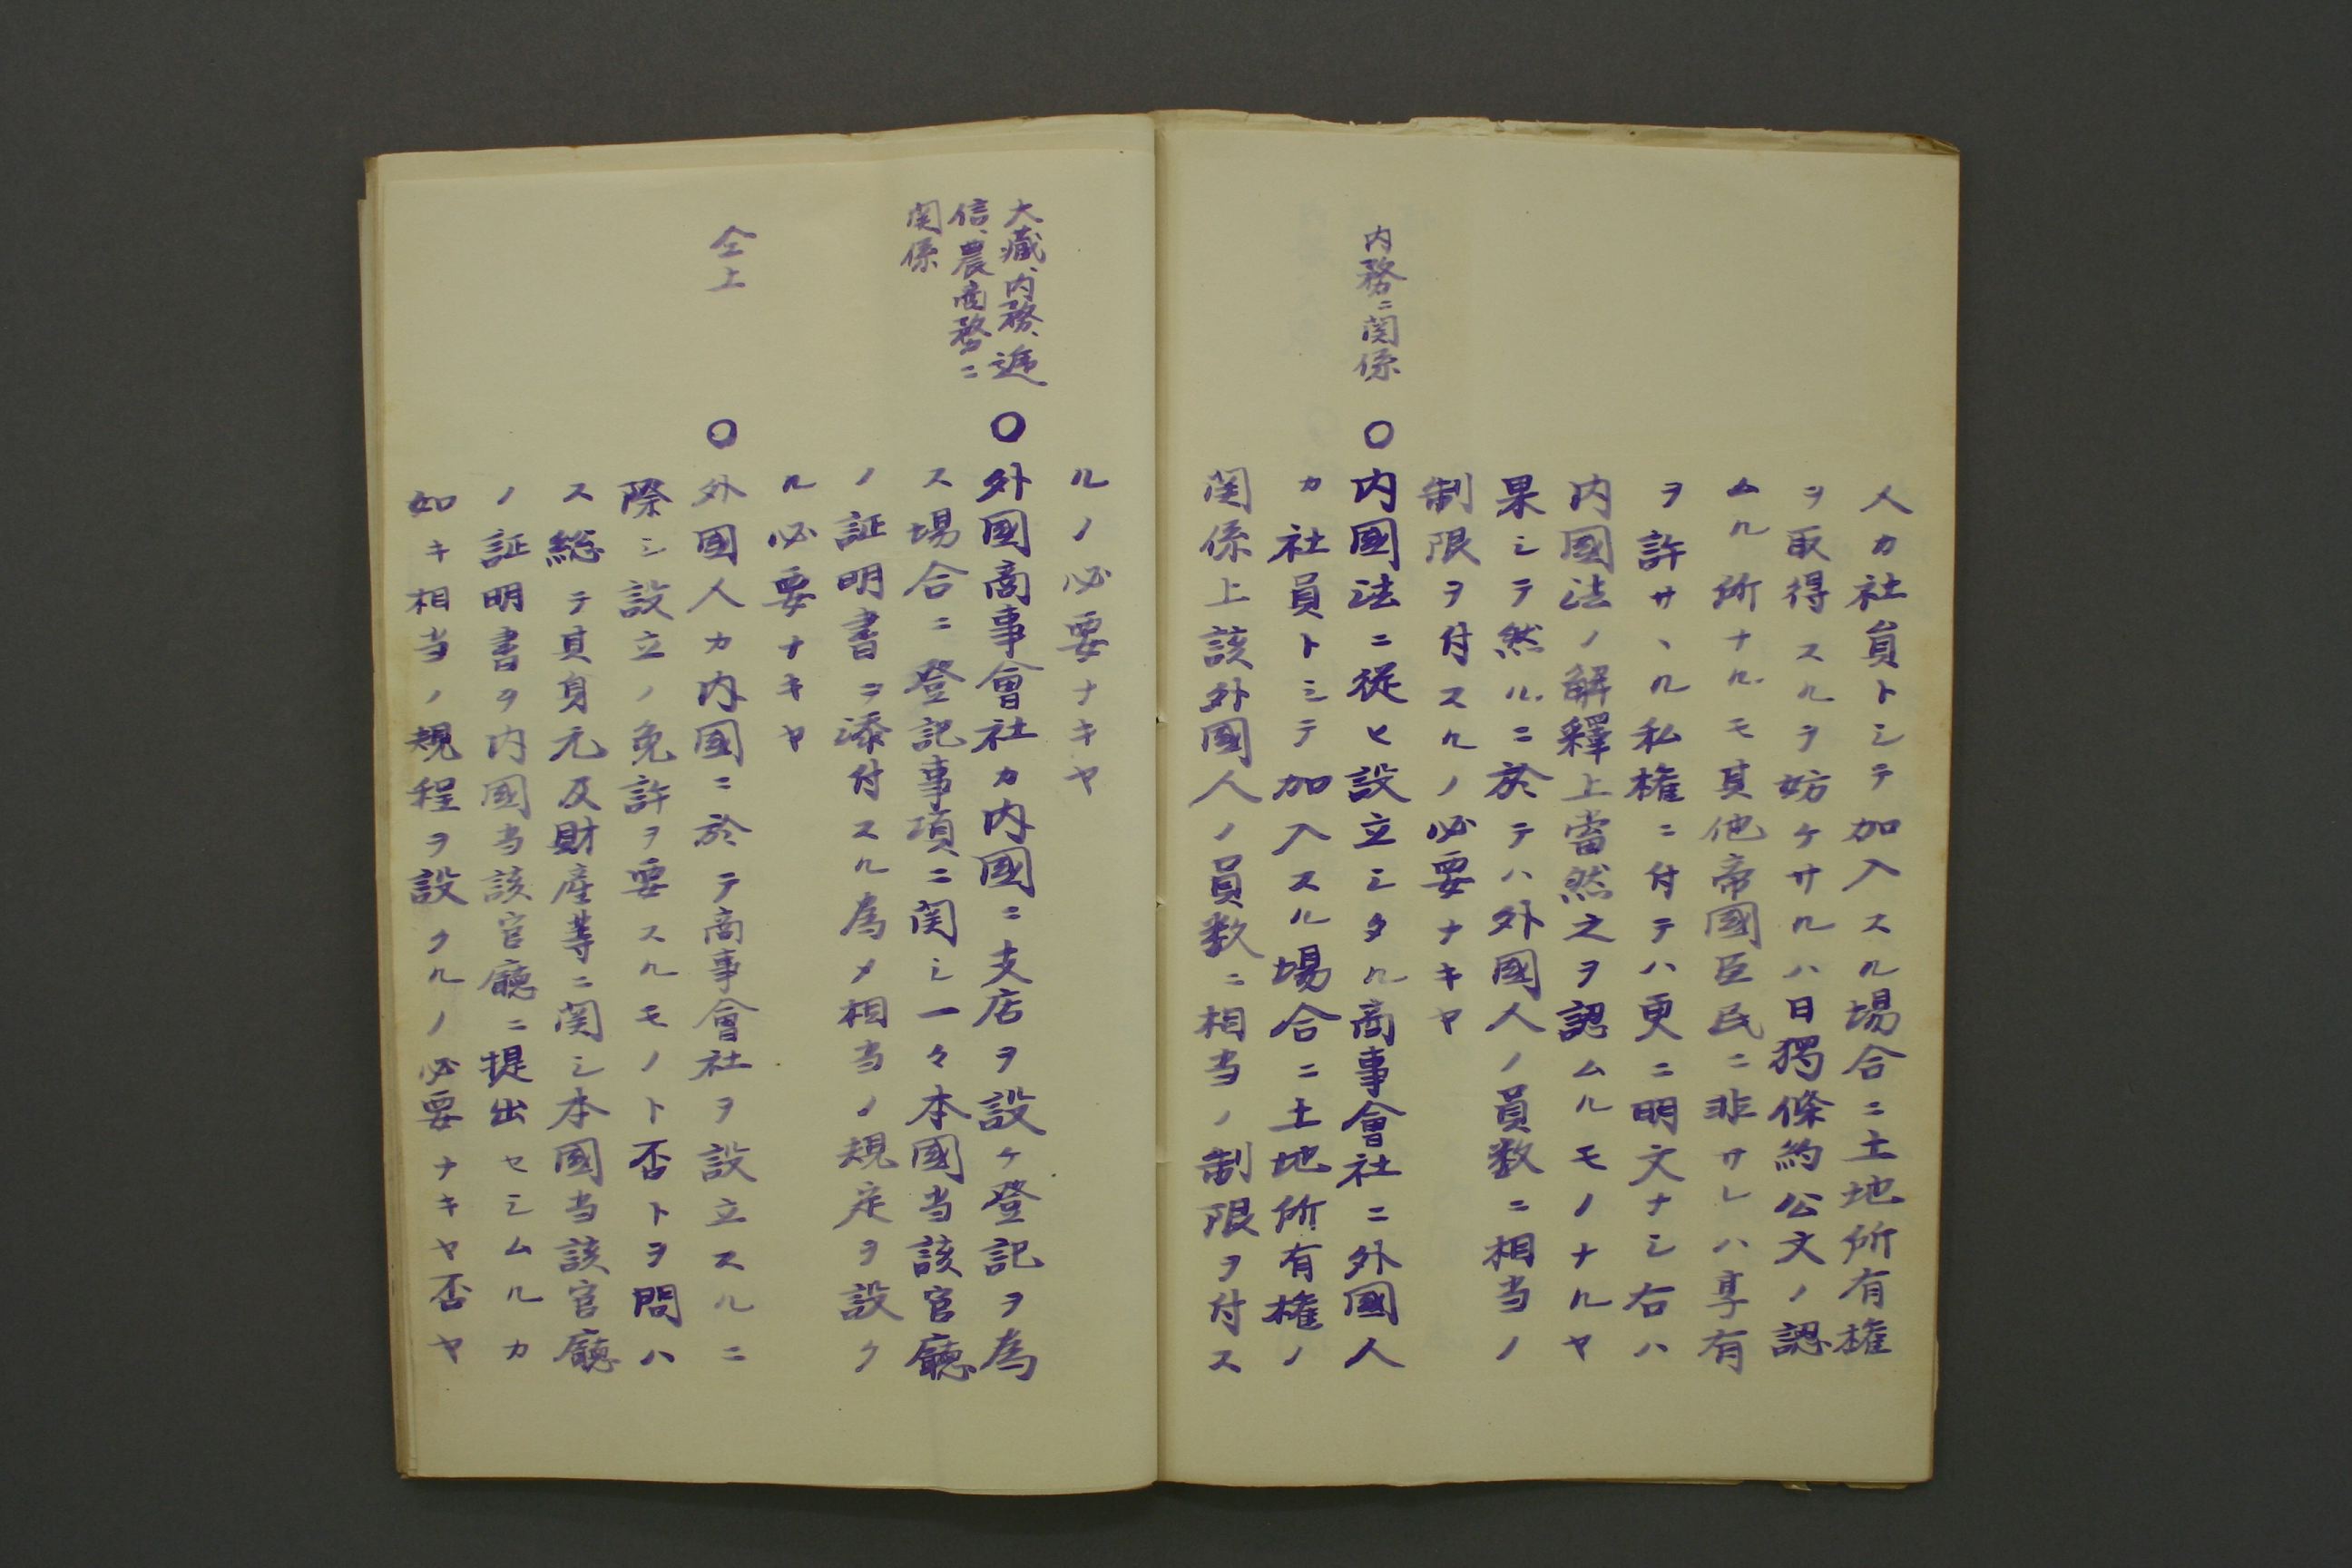 人カ社員トシテ加入スル場合ニ土地所有権
ヲ取得スルヲ妨ケサルハ日獨條約公文ノ認
ムル所ナルモ其他帝國臣民ニ非サレハ享有
ヲ許サヽル私権ニ付テハ更ニ明文ナシ右ハ
内國法ノ解釋上當然之ヲ認ムルモノナルヤ
果シテ然ルニ於テハ外國人ノ員数ニ相当ノ
制限ヲ付スルノ必要ナキヤ
内務ニ関係
〇内國法ニ従ヒ設立シタル商事會社ニ外國人
カ社員トシテ加入スル場合ニ土地所有権ノ
関係上該外國人ノ員数ニ相当ノ制限ヲ付ス
ルノ必要ナキヤ
大藏、内務、逓
信、農商務ニ
関係
〇外國商事會社カ内國ニ支店ヲ設ケ登記ヲ為
ス場合ニ登記事項ニ関シ一々本國当該官廳
ノ証明書ヲ添付スル為メ相当ノ規定ヲ設ク
ル必要ナキヤ
仝上
〇外國人カ内國ニ於テ商事會社ヲ設立スルニ
際シ設立ノ免許ヲ要スルモノト否トヲ問ハ
ス総テ其身元及財産等ニ関シ本國当該官廳
ノ証明書ヲ内國当該官廳ニ提出セシムルカ
如キ相当ノ規程ヲ設クルノ必要ナキヤ否ヤ